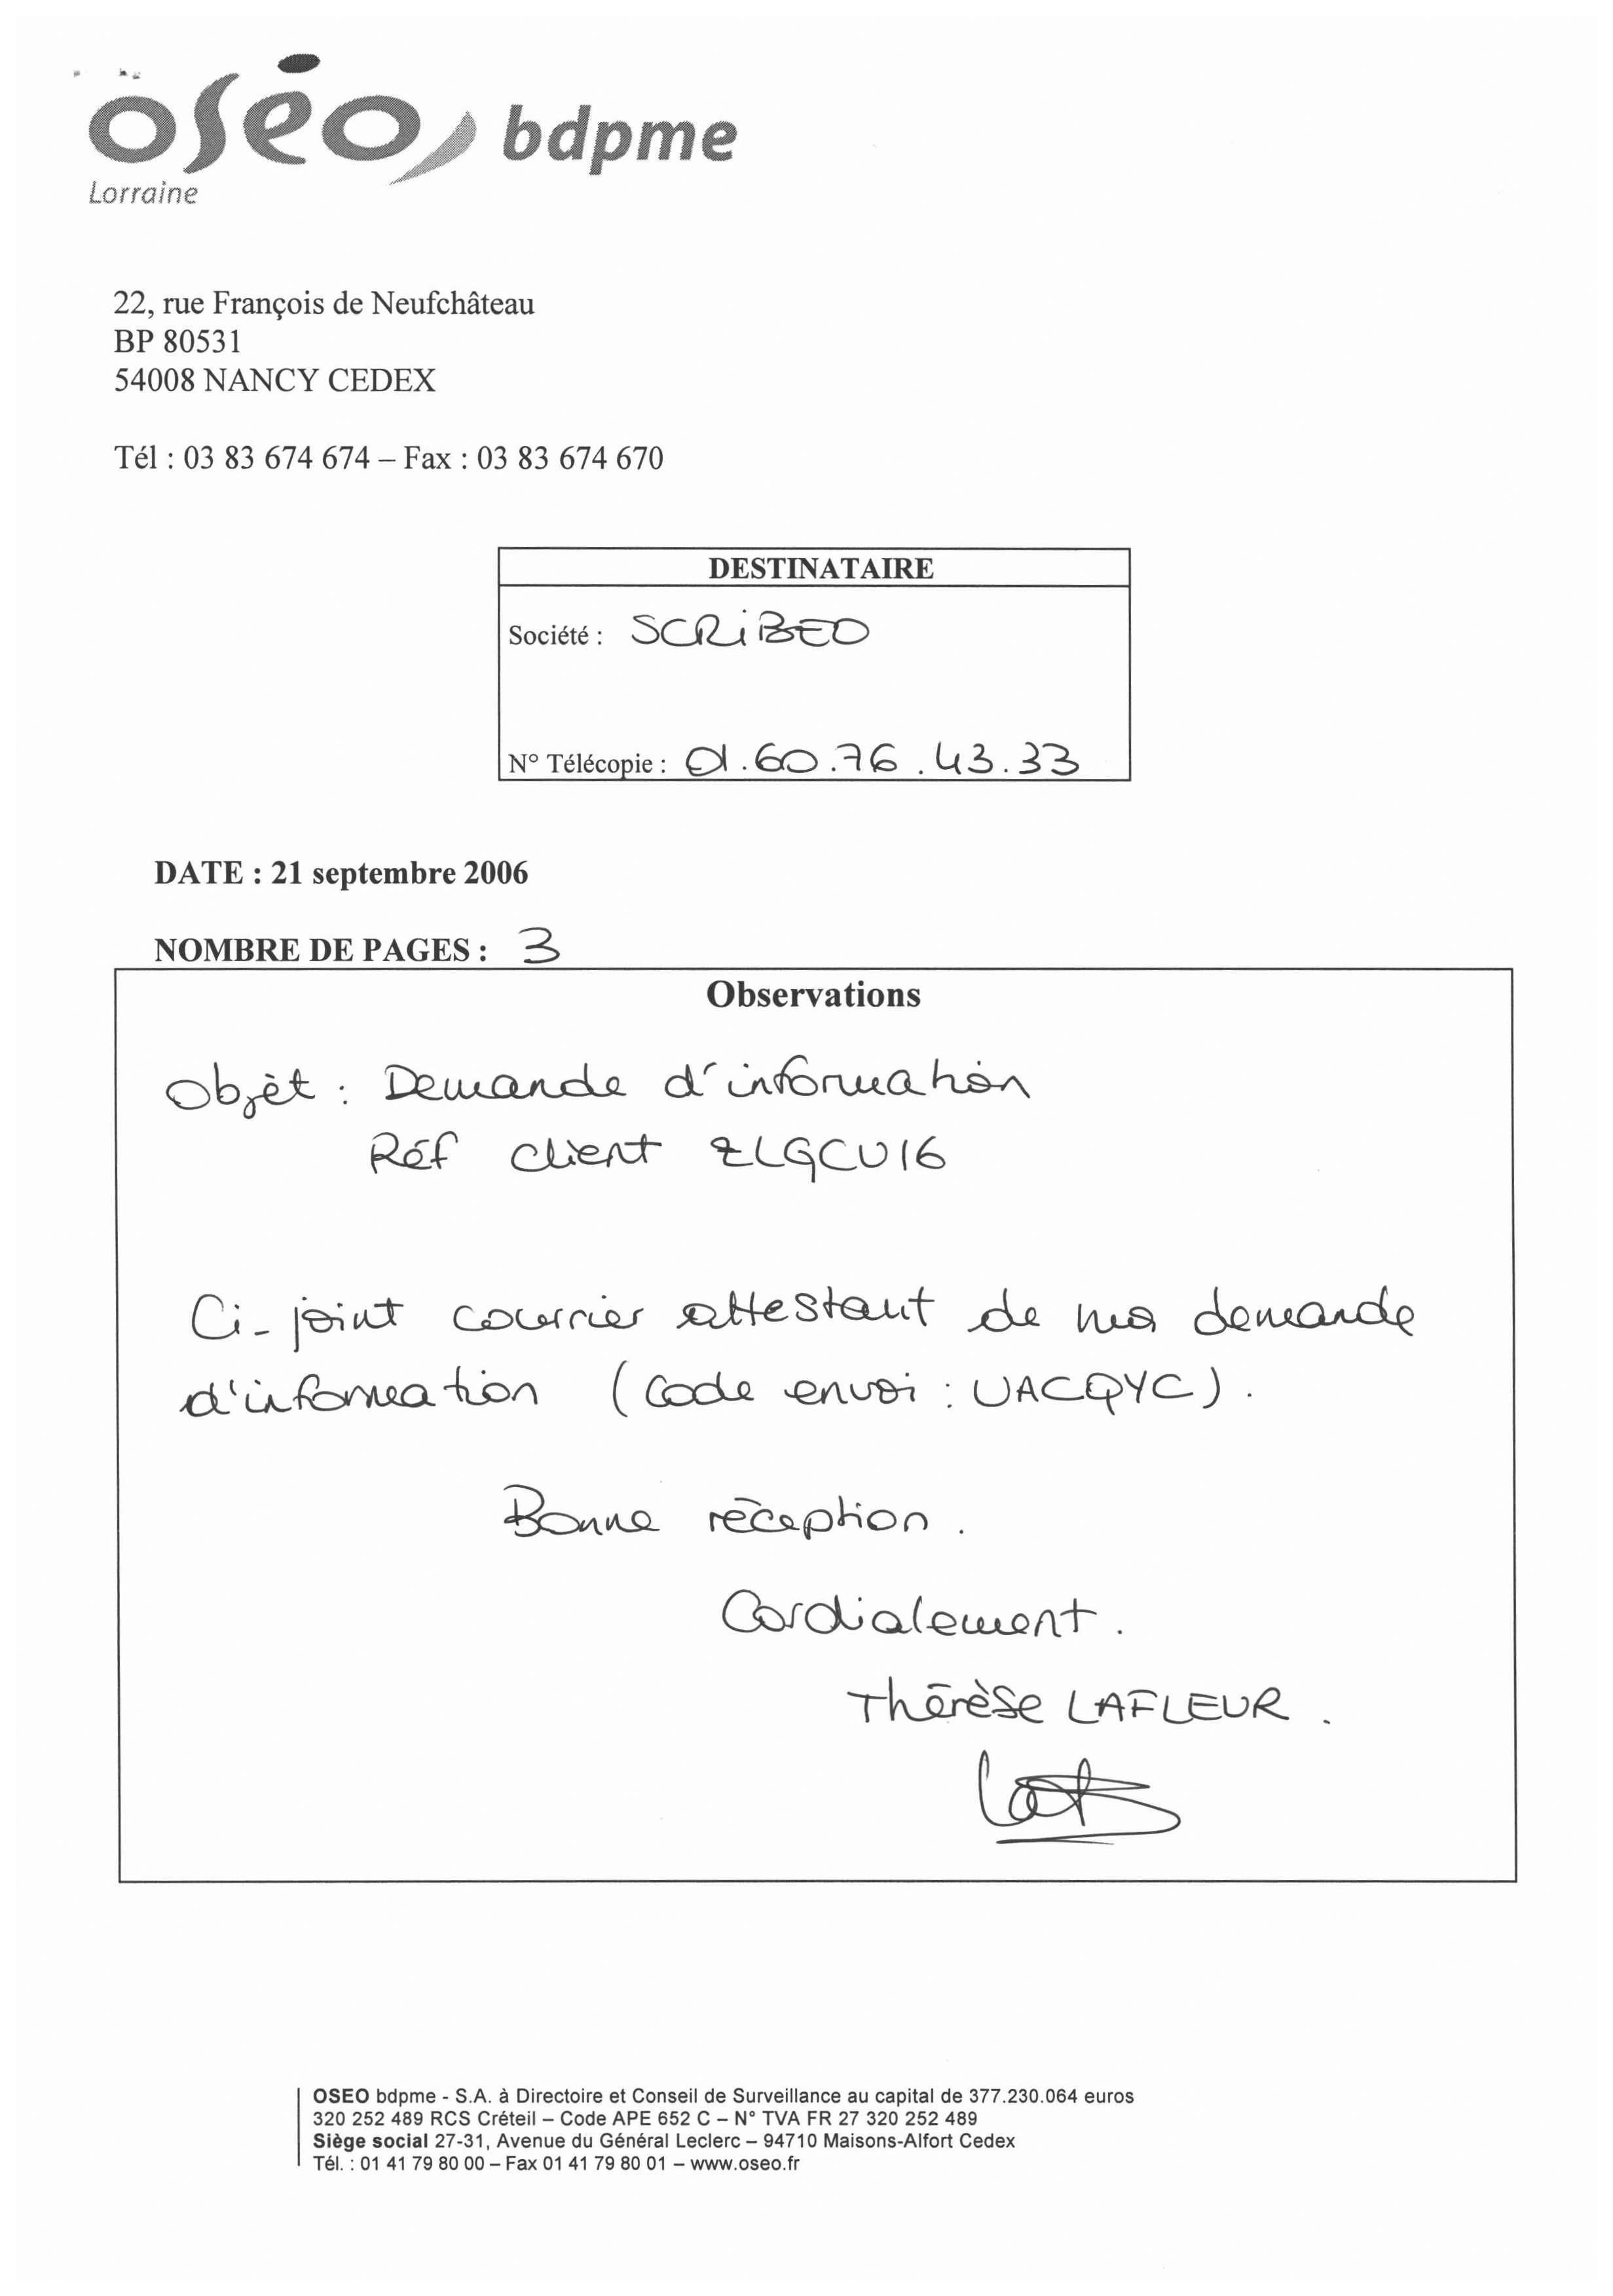 oséo bdpme
Lorraine
22, rue François de Neufchâteau
BP 80531
54008 NANCY CEDEX
Tél : 03 83 674 674 – Fax : 03 83 674 670
DESTINATAIRE
Société : SCRiBEO
N° Télécopie : 01.60.76.43.33
DATE : 21 septembre 2006
NOMBRE DE PAGES : 3
Observations
Objet : Demande d'information
Réf client ZLGCU16
Ci-joint courrier attestant de ma demande
d'information (Code envoi : UACQYC).
Bonne réception.
Cordialement.
Thérèse LAFLEUR.
OSEO bdpme - S.A. à Directoire et Conseil de Surveillance au capital de 377.230.064 euros
320 252 489 RCS Créteil – Code APE 652 C – N° TVA FR 27 320 252 489
Siège social 27-31, Avenue du Général Leclerc – 94710 Maisons-Alfort Cedex
Tél. : 01 41 79 80 00 – Fax 01 41 79 80 01 – www.oseo.fr